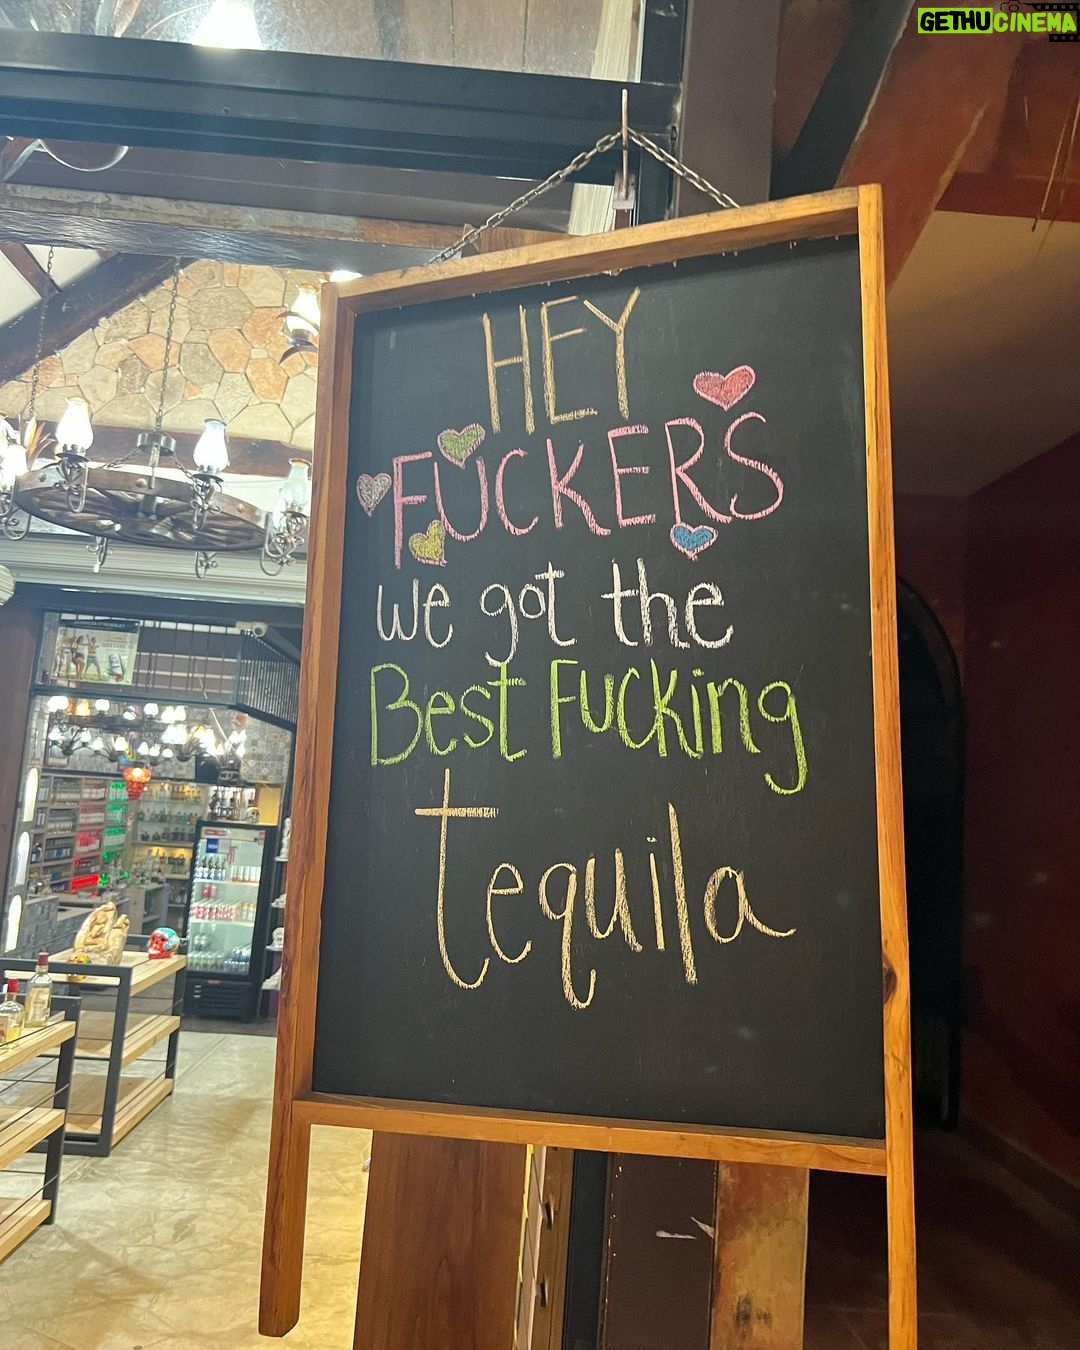 GETHUCINEMA
HEY
FUCKERS
we got the
Best Fucking
tequila